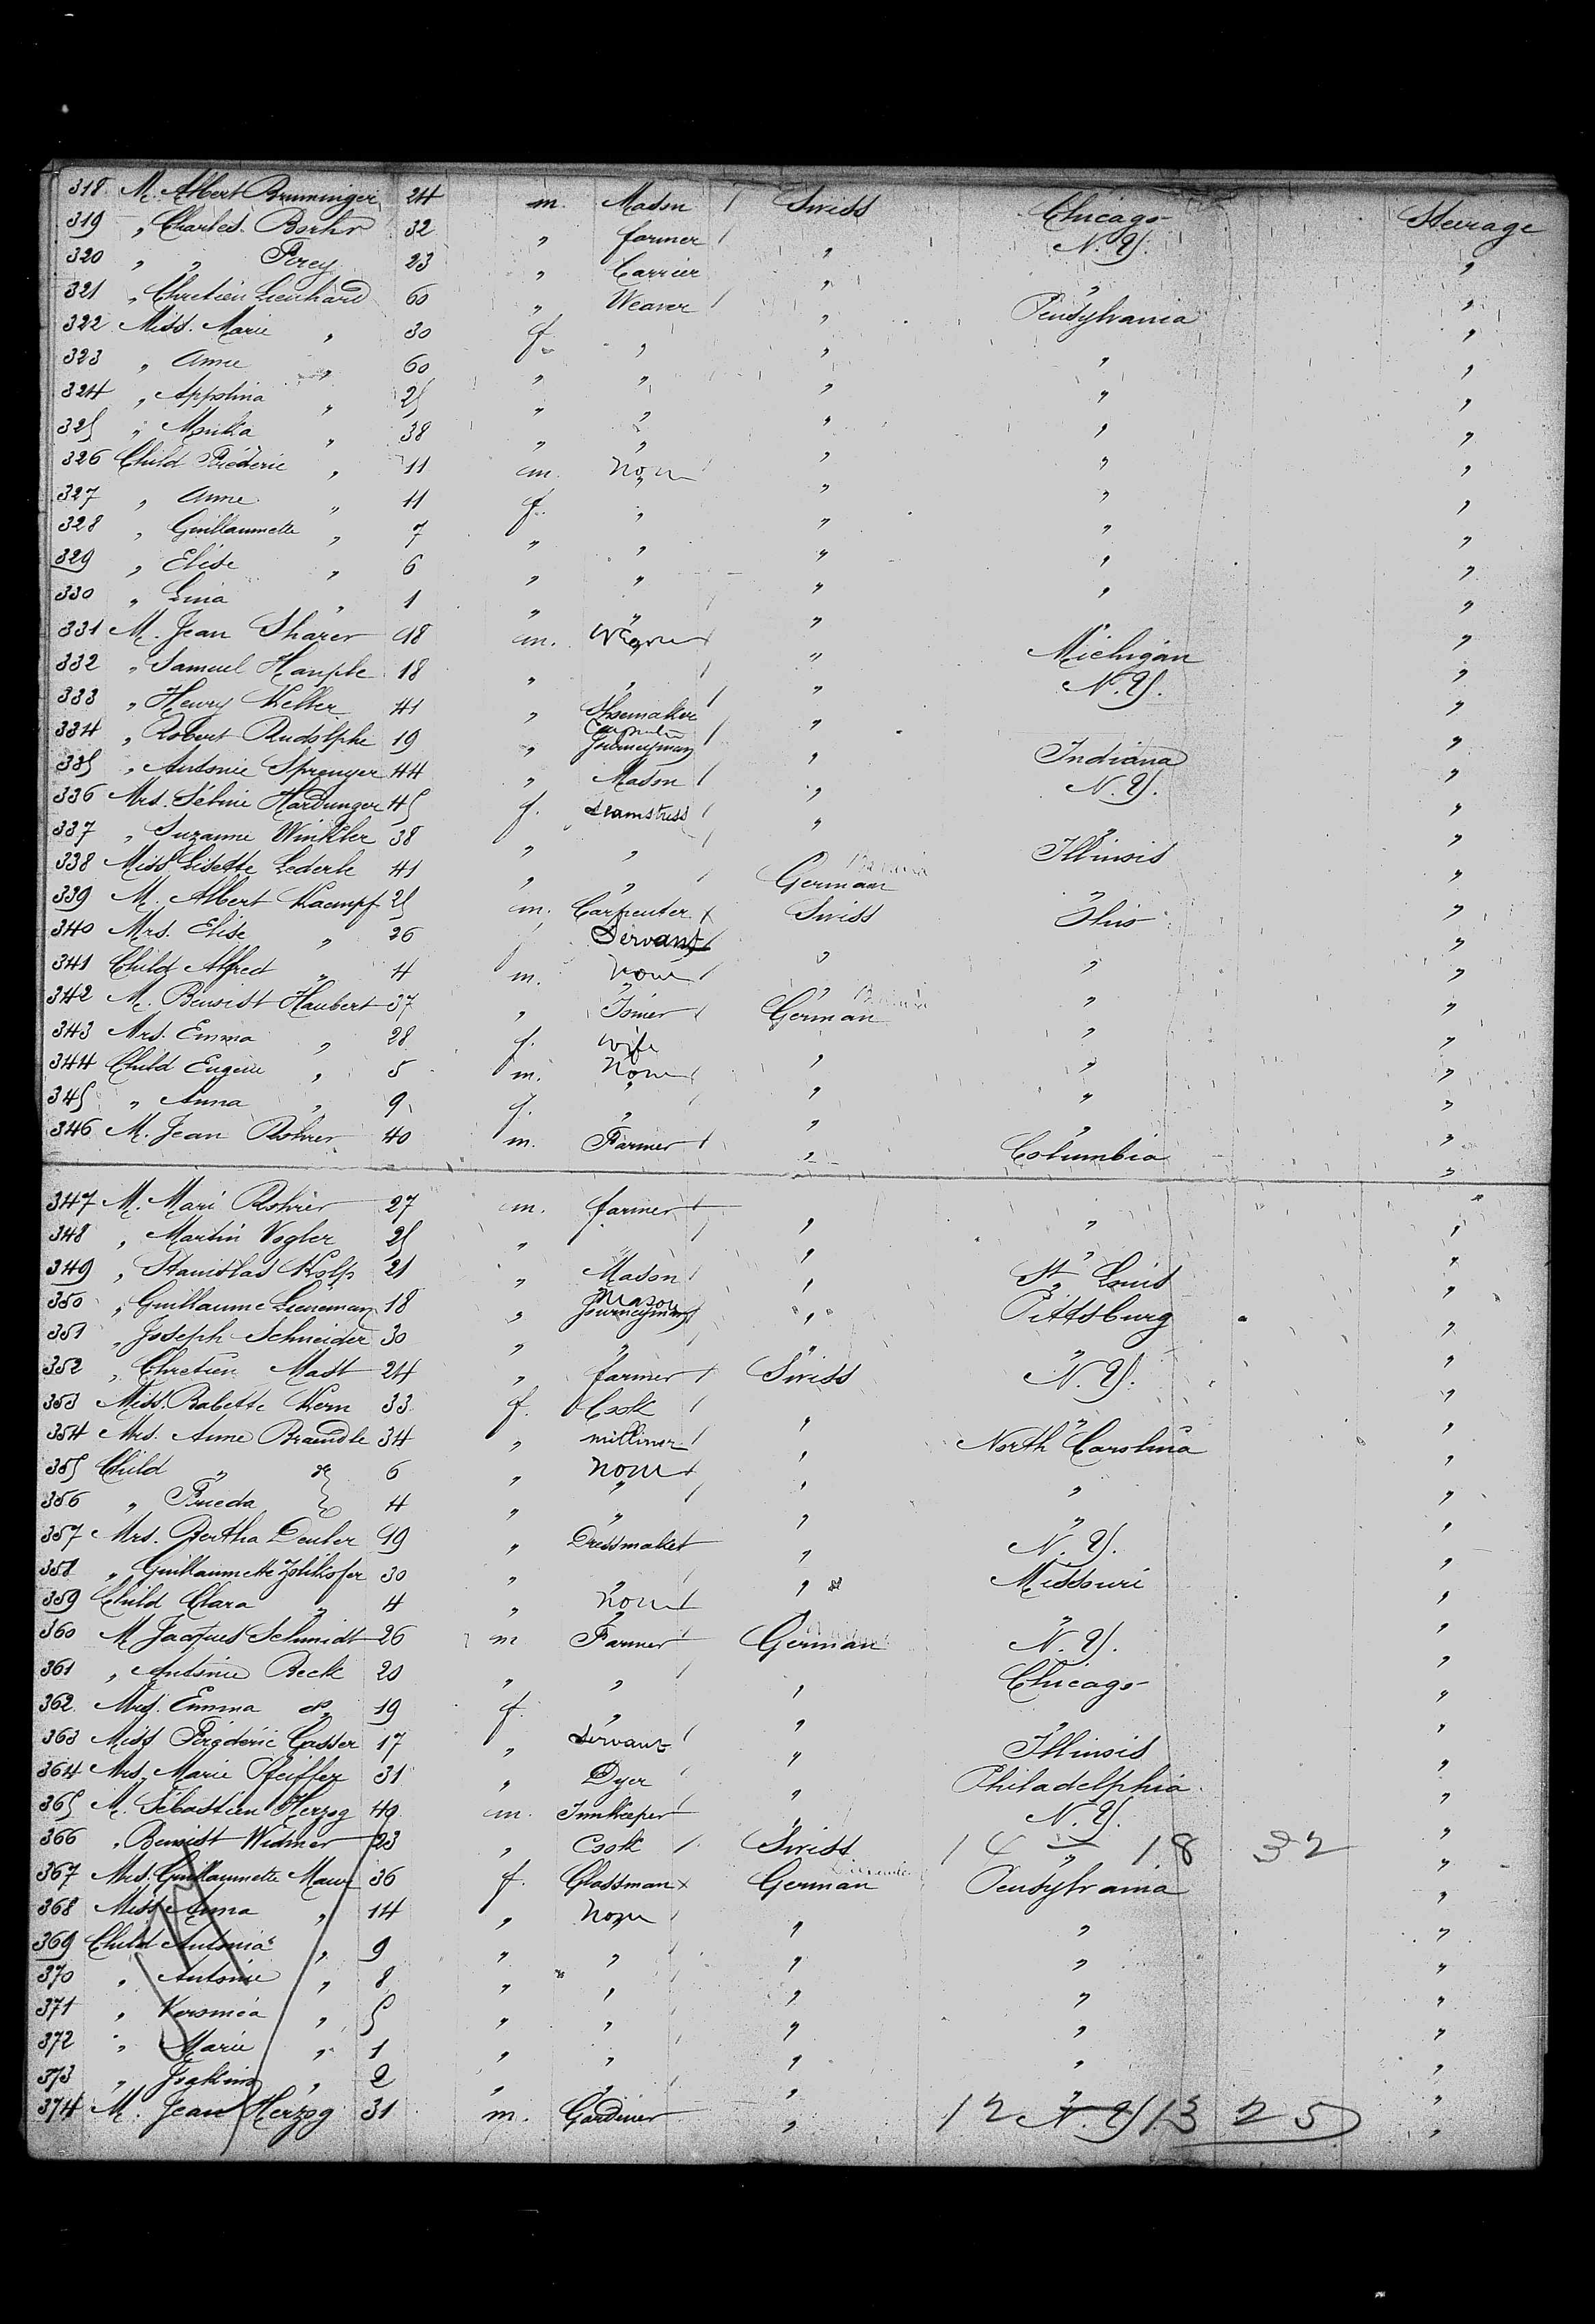 318 M. Albert Brunninger 24 m. Mason / Swiss Chicago Steerage
319 " Charles Borhr 32 " farmer / " N.Y. "
320 " " Perey 23 " Carrier " " "
321 " Chretien Lienhard 60 " Weaver / " Pensylvania "
322 Miss. Marie " 30 f. " " " "
323 " Anne " 60 " " " " "
324 " Appolina " 25 " " " " "
325 " Monika " 38 " " " " "
326 Child Fréderic " 11 m. None " " "
327 " Anne " 11 f. " " " "
328 " Guillaumette " 7 " " " " "
329 " Elise " 6 " " " " "
330 " Lina " 1 " " " " "
331 M. Jean Sharer 18 m. " Michigan "
332 " Samuel Hauple 18 " " / " N.Y. "
333 " Henry Keller 41 " Shoemaker " " "
334 " Robert Rudolphe 19 " Journeyman / " Indiana "
335 " Antonie Sprenger 44 " Mason / " N.Y. "
336 Mrs. Sébine Hardunger 45 f. Seamstress / " " "
337 " Suzanne Winkler 38 " " / Illinois "
338 Miss Lisette Lederle 41 " " German " "
339 M. Albert Kaempf 25 m. Carpenter Swiss Ohio "
340 Mrs. Elise " 26 Servant " " "
341 Child Alfred " 4 m. None " " "
342 M. Benoist Haubert 37 " German " "
343 Mrs. Emma " 28 f. wife " " "
344 Child Eugene " 5 m. None " " "
345 " Anna " 9 f. " " " "
346 M. Jean Rohrer 40 m. Farmer " Columbia "
347 M. Mari Rohrer 27 m. farmer " " "
348 " Martin Vogler 25 " " " " "
349 " Stanislas Kolp 21 " Mason " St. Louis "
350 " Guillaume Lieneman 18 " Mason Journeyman " Pittsburg "
351 " Joseph Schneider 30 " " " " "
352 " Chretien Mast 24 " farmer Swiss N.Y. "
353 Miss. Babette Kern 33 f. Cook / " " "
354 Mrs. Anne Braendle 34 " milliner / " North Carolina "
355 Child " 6 " None " " "
356 " Frieda 4 " " " " "
357 Mrs. Bertha Deuber 49 " Dressmaker " N.Y. "
358 " Guillaumette Zollikofer 30 " " " Missouri "
359 Child Clara " 4 " None " " "
360 M Jacques Schmidt 26 m Farmer German N.Y. "
361 " Antonie Beck 20 " " " Chicago "
362 Mrs. Emma do 19 f. " " " "
363 Miss Fréderic Gasser 17 " Servant " Illinois "
364 Mrs. Marie Pfeiffer 31 " Dyer " Philadelphia "
365 M. Sébastien Herzog 49 m. Innkeeper " N.Y. "
366 " Benoist Widmer 23 " Cook / Swiss " 14 18 32 "
367 Mrs. Guillaumette Maur 36 f. Glassman German Pensylvania "
368 Miss Anna " 14 " None " " "
369 Child Antonia " 9 " " " " "
370 " Antonie " 8 " " " " "
371 " " 5 " " " " "
372 " Marie " 1 " " " " "
373 " " 2 " " " " "
374 M. Jean Herzog 31 m. Gardiner " 12 N.Y. 13 25 "